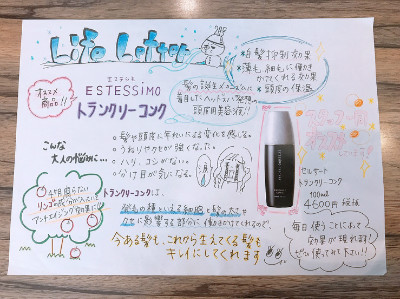 Life Letter
*白髪抑制効果
*薄毛・細毛に働きかけてくれる効果
*頭皮の保湿
オススメ
商品!!
エステシモ
ESTESSiMO
トランクリーコンク
髪の誕生メカニズムに
着目したヘッドスパ発想の
頭皮用美容液!!
こんな
大人の悩みに…
○髪や頭皮に年れいによる変化を感じる。
○うねりやクセが強くなった。
○ハリ、コシがない…
○分け目が気になる。
セルサート
トランクリーコンク
100ml
4600円 税抜
リンゴ
アンチエイジング効果に!!
トランクリーコンクは、
髪の種といえる細胞と髪の太さや
クセに影響する部分に働きかけてくれるので、
今ある髪も、これから生えてくる髪も
キレイにしてくれます
毎日使うことによって
効果が現れます!
ぜひ使ってみて下さい!!